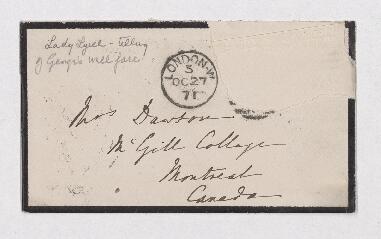 Lady Lyell - telling
of George's welfare
LONDON-W
3
OC27
71
Mrs Dawson
McGill College
Montreal
Canada